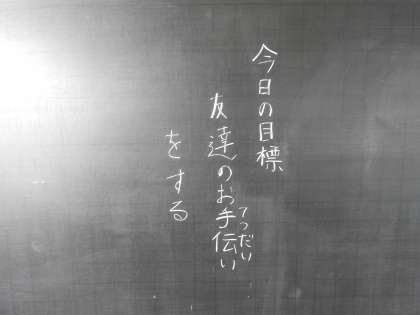 今日の目標
友達のお手伝い
てつだい
をする